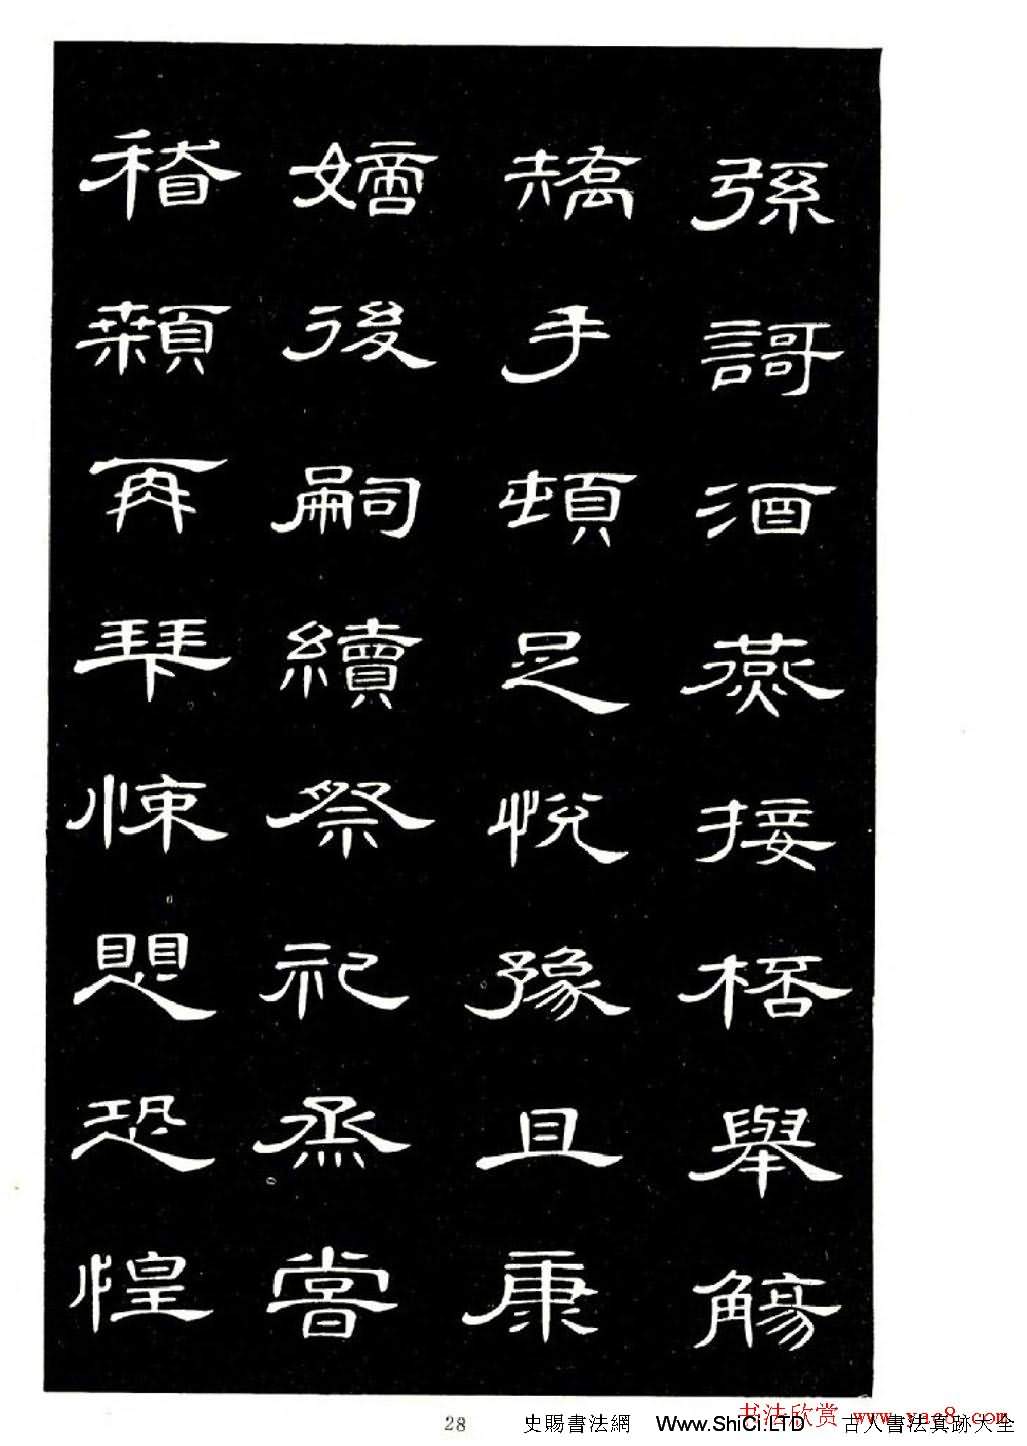 孫哥酒燕接桮舉觴
矯手頓足悅豫且康
嫡後嗣續祭祀烝嘗
稽顙再拜悚懼恐惶
28
史賜書法網 Www.ShiCi.LTD 古人書法真跡大全
书法欣赏 www.yac8.com